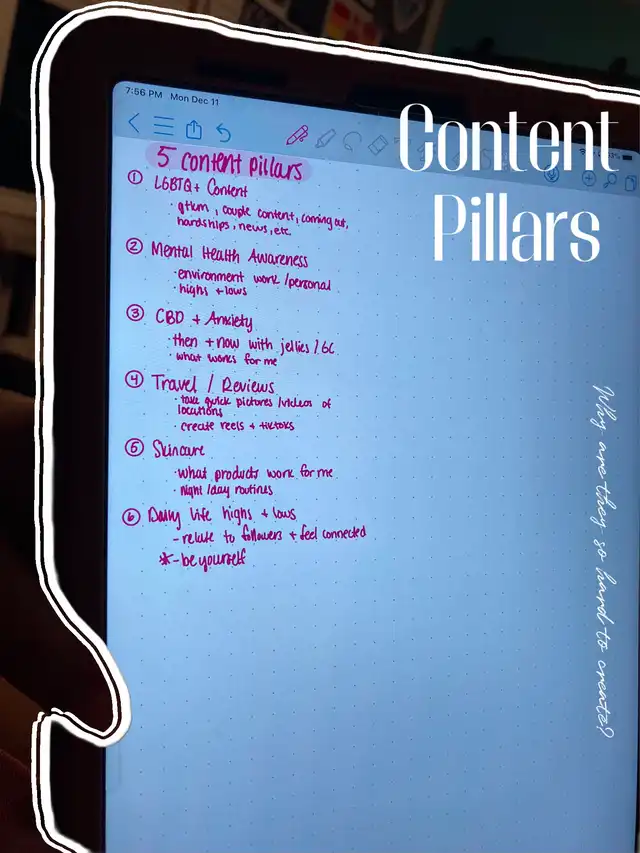 7:56 PM Mon Dec 11
Content
Pillars
5 content pillars
① LGBTQ+ Content
· gtkm, couple content, coming out,
hardships, news, etc.
② Mental Health Awareness
· environment work / personal
· highs + lows
③ CBD + Anxiety
· then + now with jellies / GC
· what works for me
④ Travel / Reviews
· take quick pictures / videos of
locations
· create reels + tiktoks
⑤ Skincare
· what products work for me
· night / day routines
⑥ Daily life highs + lows
- relate to followers + feel connected
* - be yourself
Why are they so hard to create?